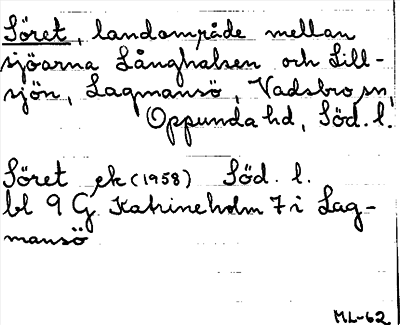 Söret, landområde mellan
sjöarna Långhalsen och Lill-
sjön, Lagmansö, Vadsbro sn,
Oppunda hd, Söd. l.
Söret ek (1958) Söd. l.
bl 9 G Katrineholm 7 i Lag-
mansö
ML-62